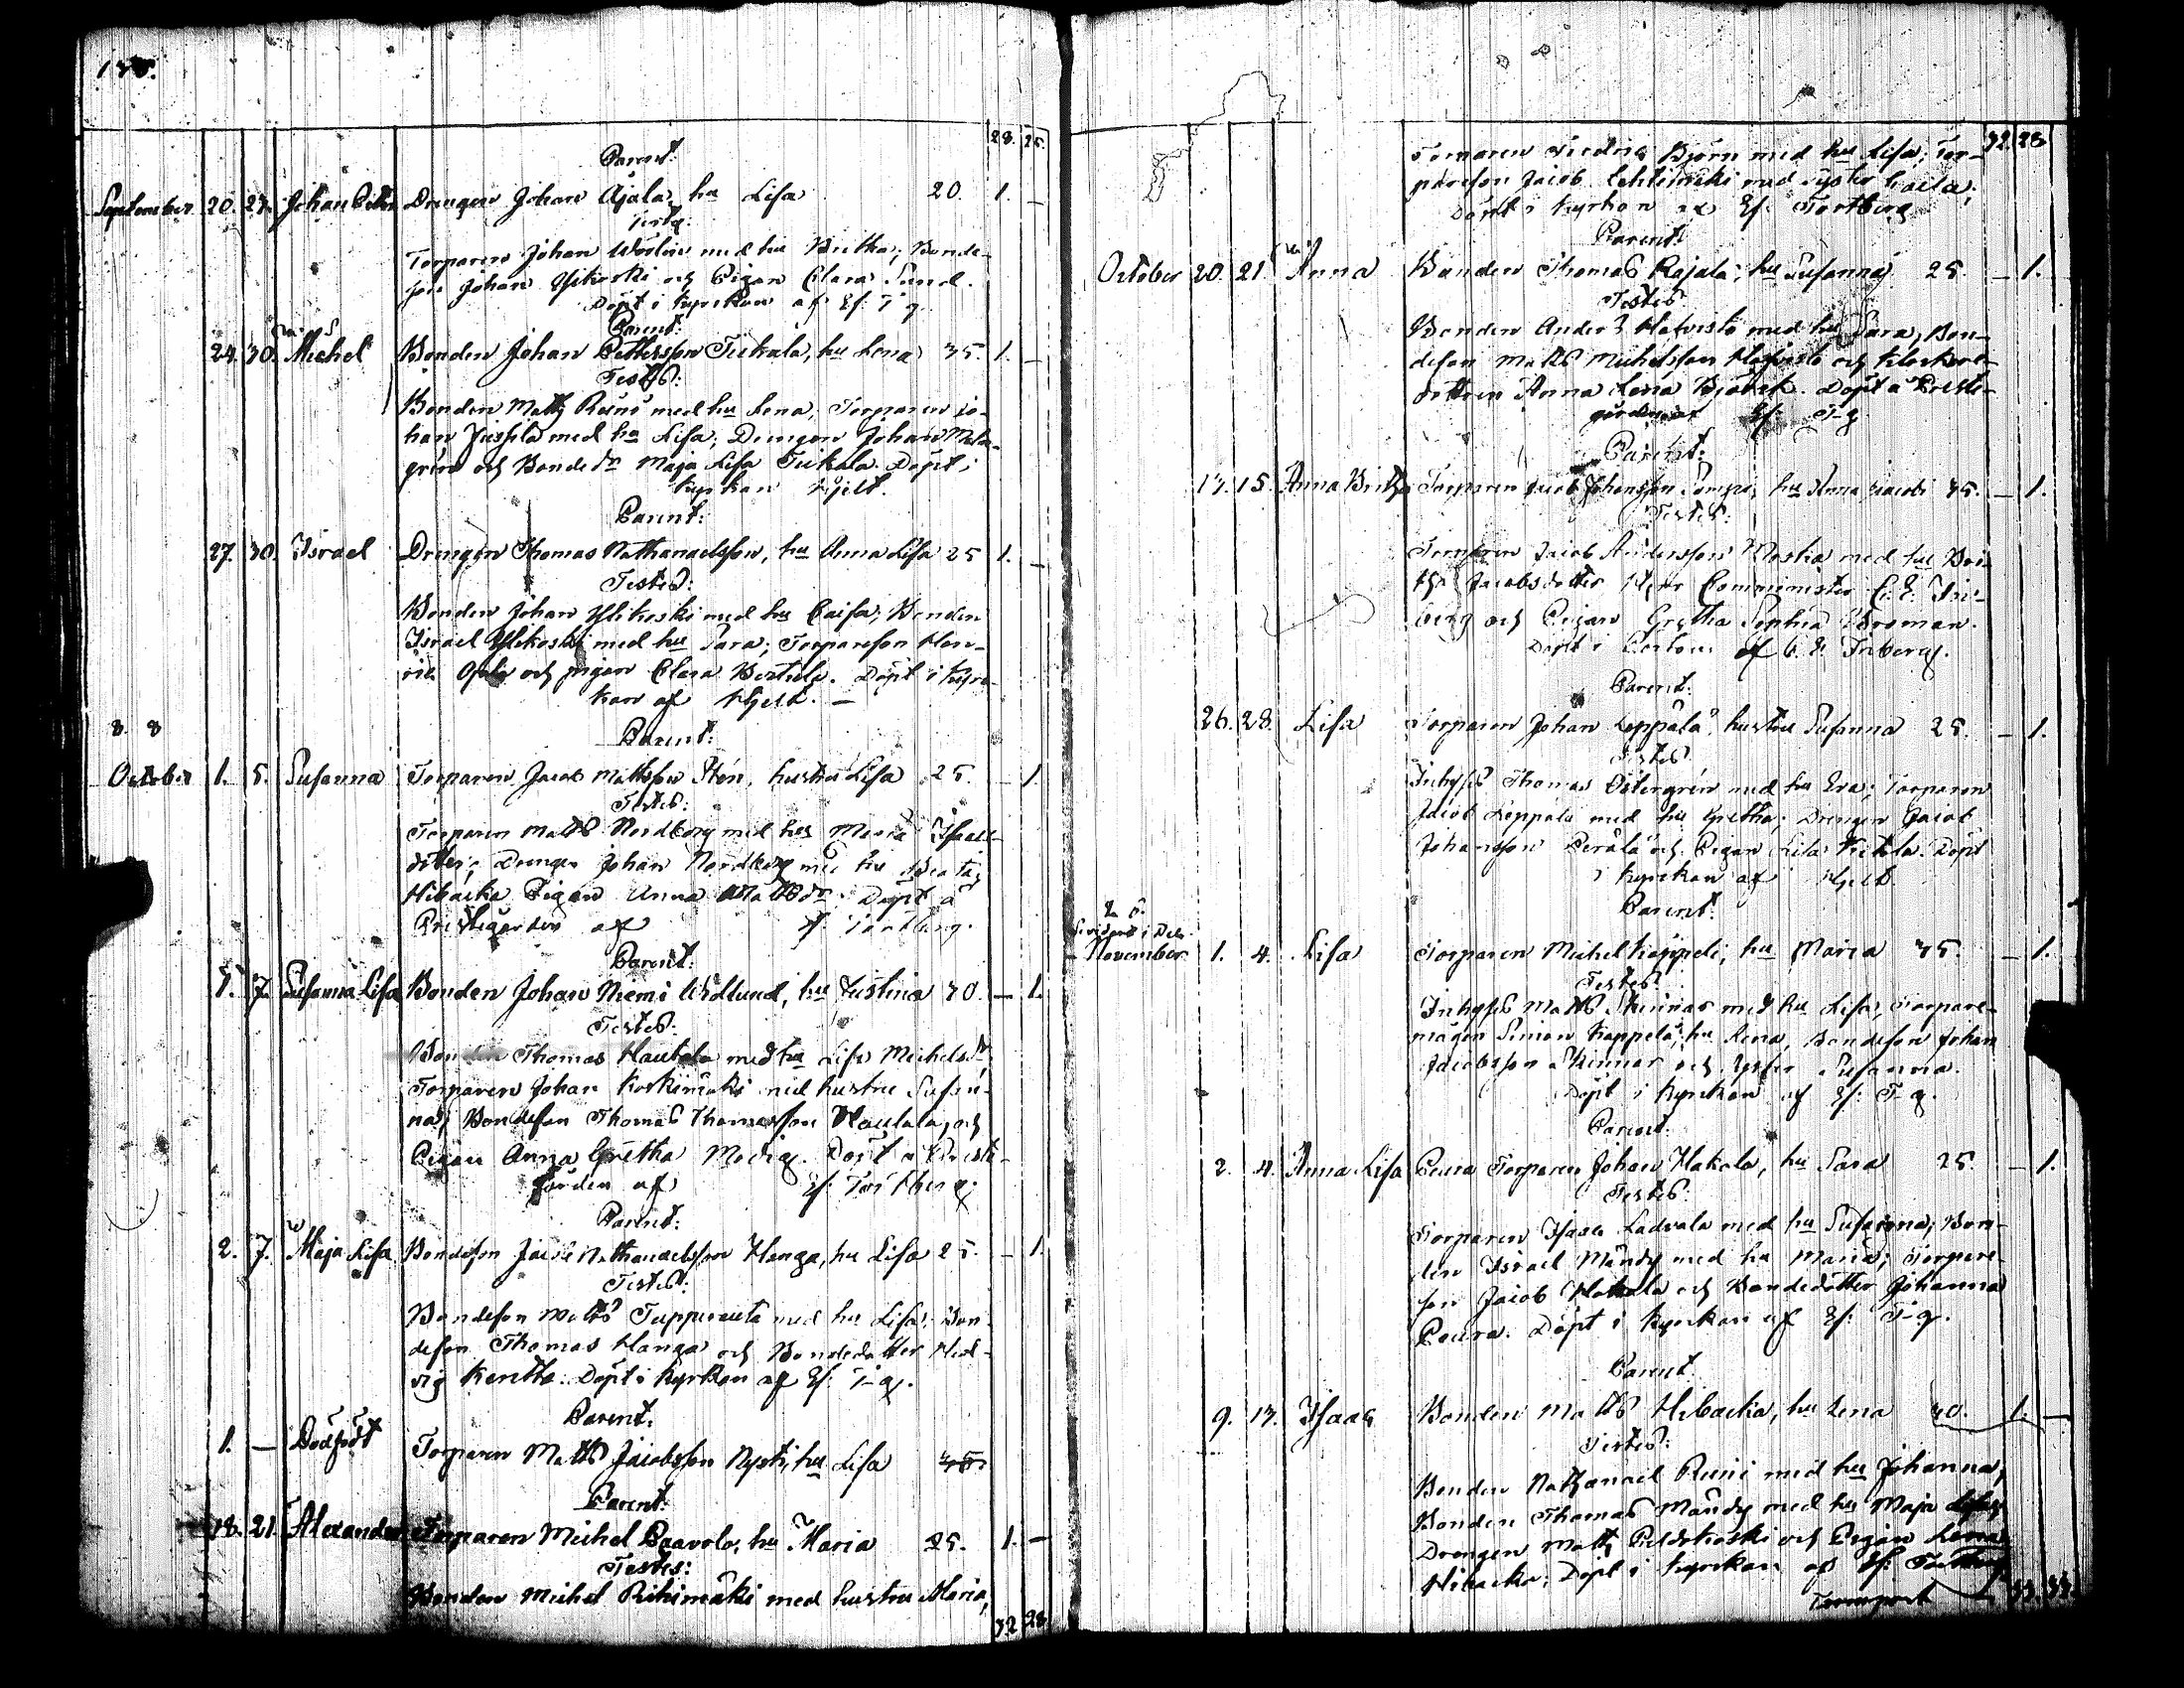 28. 25.
Parent:
September 20. 27. Johan Petter Drengen Johan Ajala hu Lisa 20. 1. —
Torparen Johan med hu Britha; Bonde-
son Johan Ylikoski och Pigan Clara Sund.
Döpt i kyrkan af Ef: T-g
Parent:
24. 30. Michel Bonden Johan Pettersson Tuikala, hu Lena 35. 1. —
Testes:
Bonden Matts Runi med hu Lena; Torparen Jo-
han Jussila med hu Lisa; Drengen Johan Malm-
grén och Bonde dr Maja Lisa Tuikala. Döpt i
kyrkan Hjelt.
Parent:
27. 30. Israel Drengen Thomas Nathanaelsson, hu Anna Lisa 25 1. —
Testes:
Bonden Johan Ylikoski med hu Caisa; Bonden
Israel Ylikoski med hu Sara; Torpareson Hen-
ric och pigan Clara Bertula. Döpt i kyr-
kan af Hjelt. —
8. 8
Parent:
October 1. 5. Susanna Torparen Jacob Mattsson Stén, hustru Lisa 25. — 1.
Testes:
Torparen Matts Nordberg med hu Maria Isaacs-
dotter; Drengen Johan Nordberg med hu Beata;
Hibacka Pigan Anna Matts dr. Döpt å
Prestgården af Ef: Tortberg.
Parent:
5. 7. Susanna Lisa Bonden Johan Niemi Widlund, hu Justina 30. — 1.
Testes:
Bonden Thomas Hautala med hu Lisa Michels dr,
Torparen Johan Koskimäki med hustru Susan-
na; Bondeson Thomas Thomasson Hautala, och
Pigan Anna Gretha Modig. Döpt å Prest-
gården af Ef: Tortberg.
Parent:
2. 7. Maja Lisa Bondeson Jacob Nathanaelsson Hanga, hu Lisa 25. — 1.
Testes:
Bondeson Matts Tuppurauta med hu Lisa; Bon-
deson Thomas Hanga och Bondedotter Hed-
vig Kentta. Döpt i kyrkan af Ef: T-g.
Parent.
1. — Dödfödt Torparen Matts Jacobsson Nysti, hu Lisa 35.
Parent:
18. 21. Alexander Torparen Michel Paavola, hu Maria 25. 1. —
Testes:
Bonden Michel Rihimäki med hustru Maria,
32 28
32 28
Torparen Fredric Björn med hu Lisa; Tor-
pareson Jacob Lehtimäki med syster Caisa;
Döpt i kyrkan af Ef: Tortberg
Parent:
October 20. 21. Anna Bonden Thomas Rajala, hu Susanna 25. — 1.
Testes
Bonden Anders Hotvisto med hu Sara; Bon-
deson Matts Michelsson och Klockare-
dottren Anna Lena Björck. Döpt å Prest-
gården af Ef: T-g
Parent:
13. 15. Anna Britha Torparen Jacob Johansson hu Anna Jacobs 35. — 1.
Testes:
Torparen Jacob Andersson med hu Bri-
tha Jacobsdotter; Herr Comminister C. E. Fri-
berg och Pigan Gretha Sophia Broman.
Döpt i af C. E. Friberg.
Parent:
26. 28. Lisa Torparen Johan Leppälä, hustru Susanna 25. — 1.
Testes
Inhyses Thomas Östergrén med hu Eva; Torparen
Jacob Leppälä med hu Gretha; Drengen Jacob
Johansson Perälä och Pigan Lisa. Döpt
i kyrkan af Hjelt.
Parent:
November 1. 4. Lisa Torparen Michel Kappeli, hu Maria 35. — 1.
Testes:
Inhyses Matts Skinnar med hu Lisa, Torpare-
mågen Simon Kappeli, hu Lena, Bondeson Johan
Jacobsson Skinnar och syster Susanna.
Döpt i kyrkan af Ef: T-g.
Parent:
2. 4. Anna Lisa Peura Torparen Johan Hakola, hu Sara 25. — 1.
Testes:
Torparen Isaac Ladvala med hu Susanna; Bon-
den Israel Mändy med hu Maria; Torpare-
son Jacob Hakala och Bondedotter Johanna
Peura. Döpt i kyrkan af Ef: T-g.
Parent
9. 13. Isaac Bonden Matts Hibacka, hu Lena 40. 1. —
Testes:
Bonden Nathanael Runi med hu Johanna,
Bonden Thomas Mändy med hu Maja Lisa;
Drengen Matts och Pigan Lena
Hibacka; Döpt i kyrkan af Ef: Tortberg
Transport 33. 33.